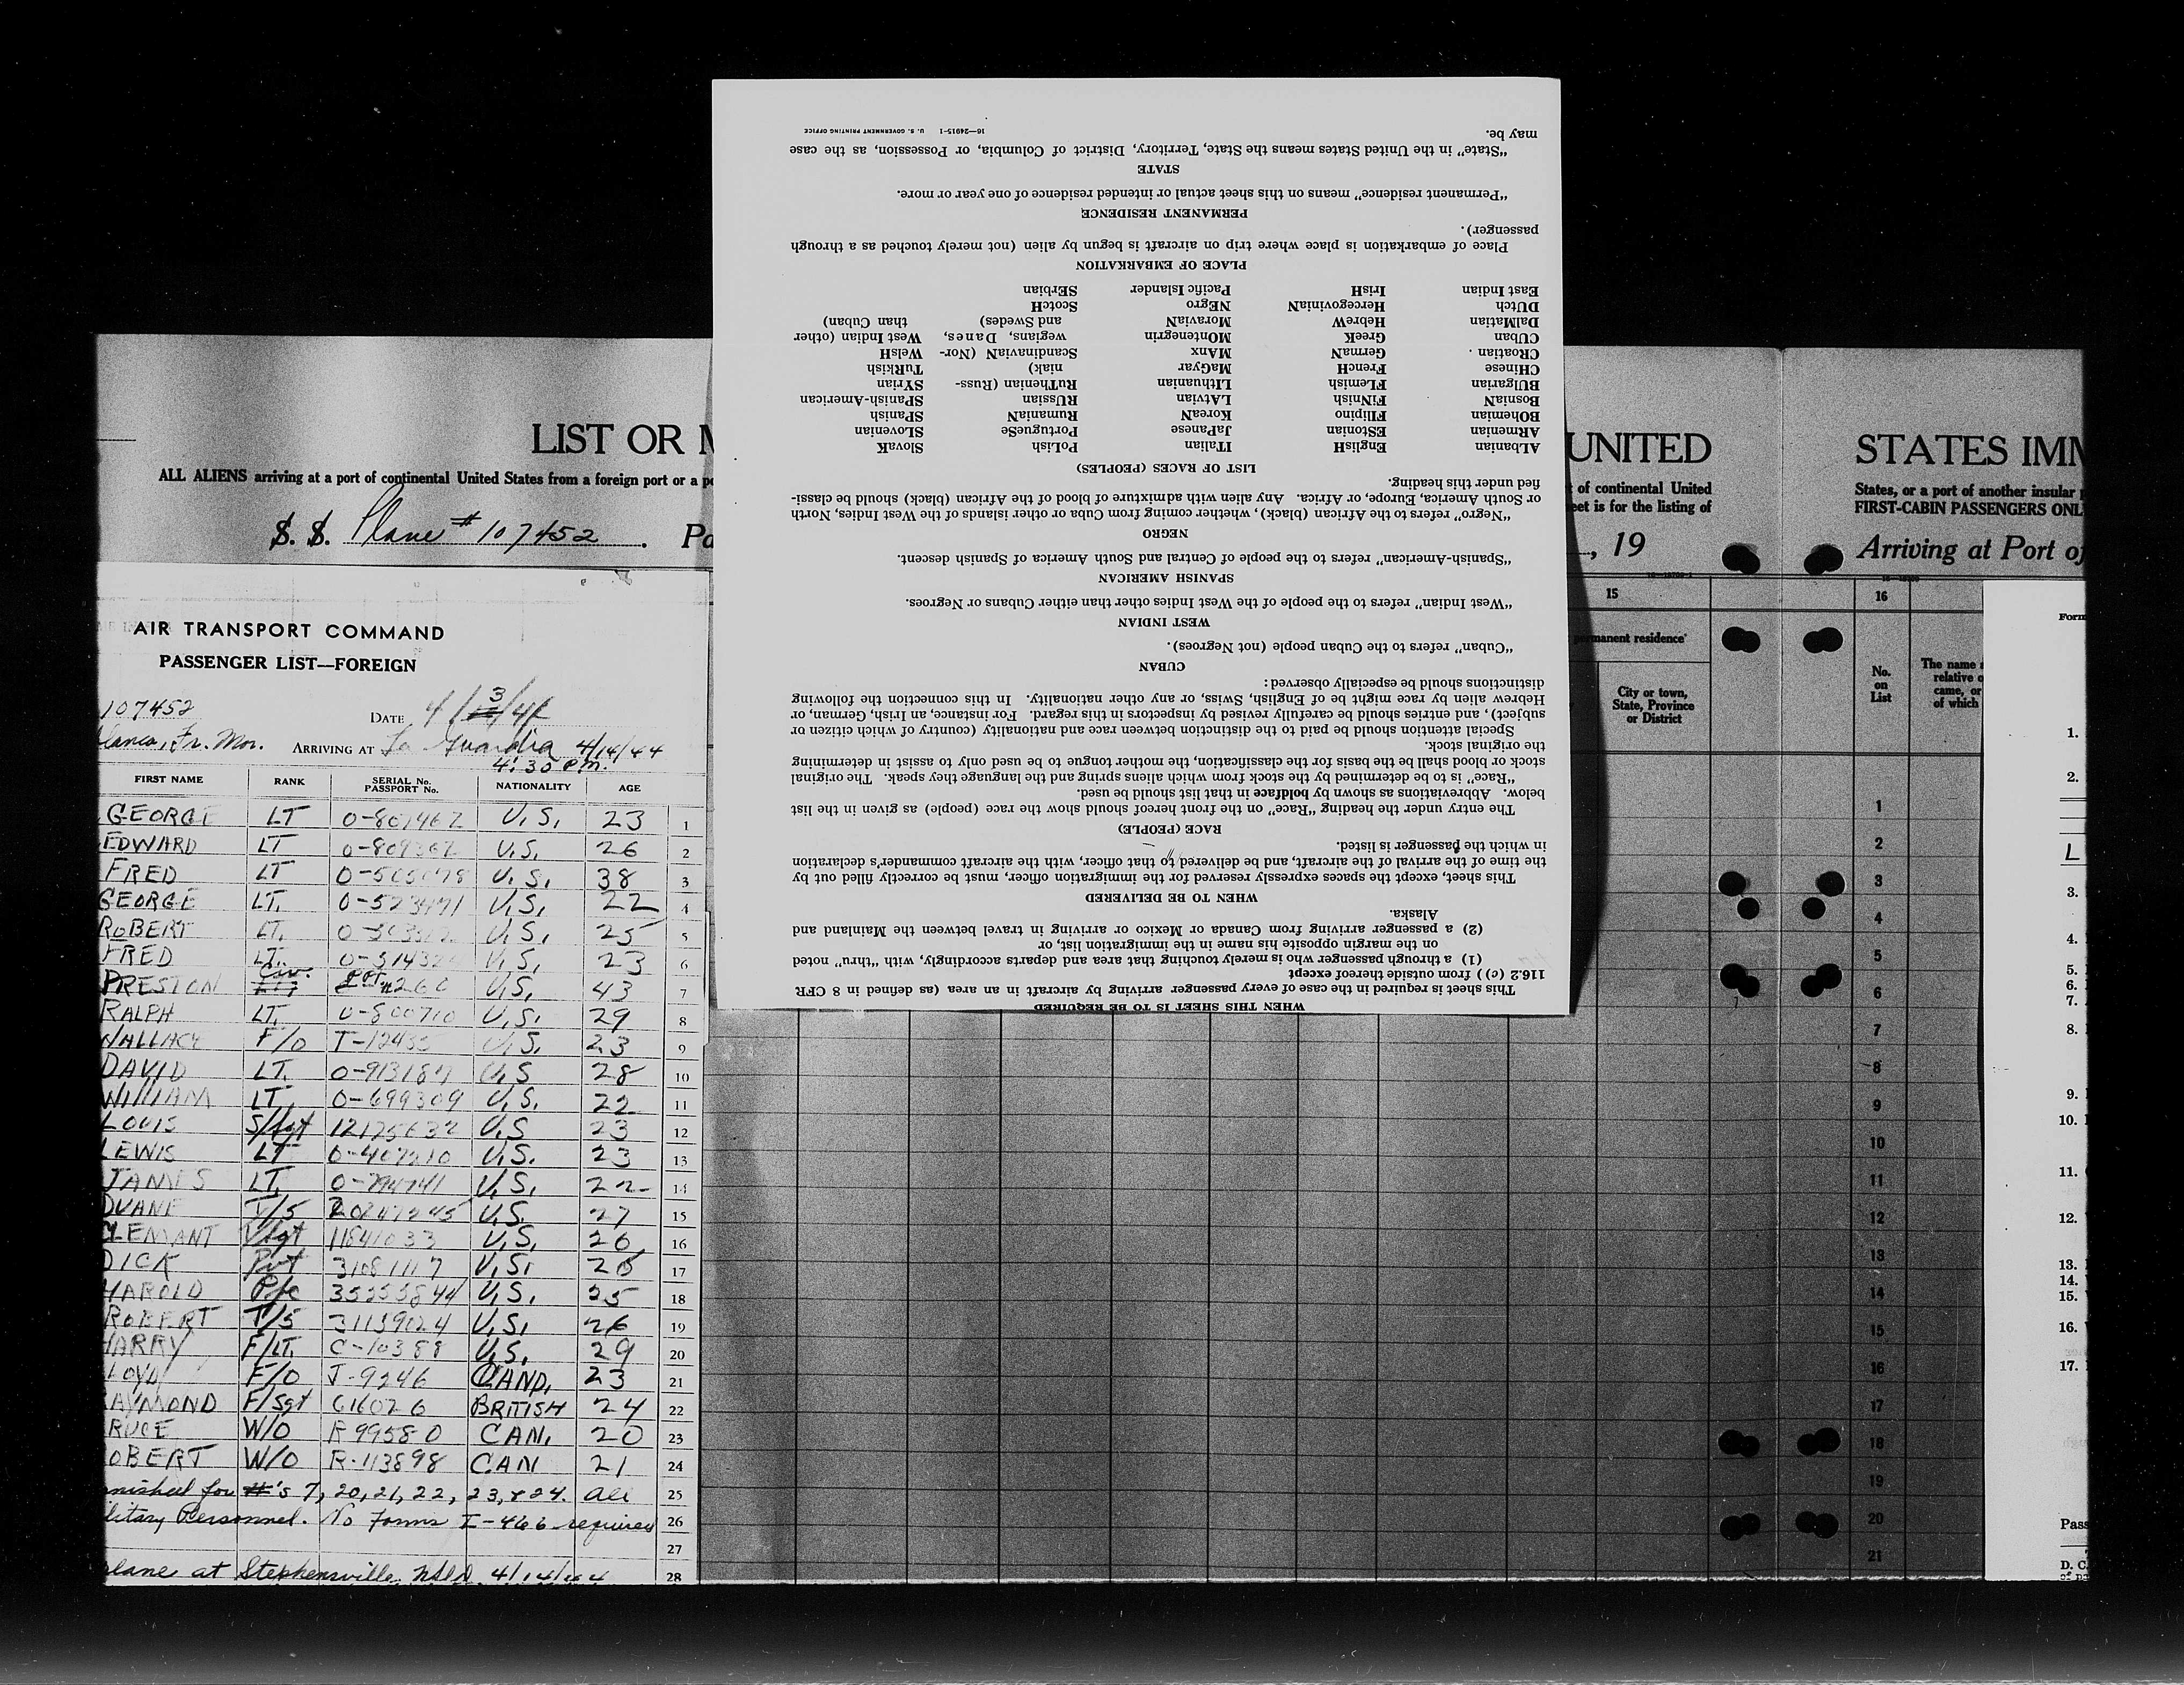 LIST OR M
ALL ALIENS arriving at a port of continental United States from a foreign port or a po
S. S. Plane # 107452 . Pa
AIR TRANSPORT COMMAND
PASSENGER LIST—FOREIGN
107452 DATE 4/3/44
lanca, Fr. Mor. ARRIVING AT La Guardia 4/14/44
4:30 P.M.
FIRST NAME RANK SERIAL No. PASSPORT No. NATIONALITY AGE
GEORGE LT 0-801462 U.S. 23 1
EDWARD LT U.S. 26 2
FRED LT U.S. 38 3
GEORGE LT. 0-523471 U.S. 22 4
ROBERT LT. U.S. 25 5
FRED LT. U.S. 23 6
PRESTON Civ. U.S. 43 7
RALPH LT. 0-800710 U.S. 29 8
WALLACE F/O U.S. 23 9
DAVID LT. U.S 28 10
WILLIAM LT. 0-699309 U.S. 22 11
LOUIS S/Sgt 12175632 U.S 23 12
LEWIS LT 0-407210 U.S. 23 13
JAMES LT. 0-794741 U.S. 22 14
DUANE T/5 20247245 U.S. 27 15
CLEMANT 11041033 U.S. 26 16
DICK Pvt 31081117 U.S. 17
HAROLD Pfc 35255844 U.S. 25 18
ROBERT T/5 31139024 U.S. 26 19
HARRY F/LT. C-10388 U.S. 29 20
LOYD F/O J-9246 CAND. 23 21
AYMOND F/Sgt 616026 BRITISH 24 22
RUCE W/O R 99580 CAN. 20 23
OBERT W/O R-113898 CAN 21 24
nished for #'s 7, 20, 21, 22, 23, & 24. all 25
litary Personnel. No Forms I-466 required 26
27
plane at Stephensville, Nfld. 4/14/44 28
WHEN THIS SHEET IS TO BE REQUIRED
This sheet is required in the case of every passenger arriving by aircraft in an area (as defined in 8 CFR
116.2 (c)) from outside thereof except
(1) a through passenger who is merely touching that area and departs accordingly, with "thru" noted
on the margin opposite his name in the immigration list, or
(2) a passenger arriving from Canada or Mexico or arriving in travel between the Mainland and
Alaska.
WHEN TO BE DELIVERED
This sheet, except the spaces expressly reserved for the immigration officer, must be correctly filled out by
the time of the arrival of the aircraft, and be delivered to that officer, with the aircraft commander's declaration
in which the passenger is listed.
RACE (PEOPLE)
The entry under the heading "Race" on the front hereof should show the race (people) as given in the list
below. Abbreviations as shown by boldface in that list should be used.
"Race" is to be determined by the stock from which aliens spring and the language they speak. The original
stock or blood shall be the basis for the classification, the mother tongue to be used only to assist in determining
the original stock.
Special attention should be paid to the distinction between race and nationality (country of which citizen or
subject), and entries should be carefully revised by inspectors in this regard. For instance, an Irish, German, or
Hebrew alien by race might be of English, Swiss, or any other nationality. In this connection the following
distinctions should be especially observed:
CUBAN
"Cuban" refers to the Cuban people (not Negroes).
WEST INDIAN
"West Indian" refers to the people of the West Indies other than either Cubans or Negroes.
SPANISH AMERICAN
"Spanish-American" refers to the people of Central and South America of Spanish descent.
NEGRO
"Negro" refers to the African (black), whether coming from Cuba or other islands of the West Indies, North
or South America, Europe, or Africa. Any alien with admixture of blood of the African (black) should be classi-
fied under this heading.
LIST OF RACES (PEOPLES)
ALbanian EngliSH ITalian PoLish SlovaK
ARmenian EStonian JaPanese PortugueSe SLovenian
BOhemian FIlipino KoreaN RumaniaN SPanish
BosniaN FiNnisH LAtvian RUssian SPanish-American
BUlgarian FLemish LIthuanian RuThenian (Russ- SYrian
CHinese FrencH MaGyar niak) TuRkish
CROatian GermaN MAnx ScandinaviaN (Nor- WelsH
CUBAN GreeK MOntenegrin wegians, Danes, West Indian (other
DalMatian HebreW MoraviaN and Swedes) than Cuban)
DUtch HercegoviniaN NEgro ScotcH
East Indian IrisH Pacific Islander SErbian
PLACE OF EMBARKATION
Place of embarkation is place where trip on aircraft is begun by alien (not merely touched as a through
passenger).
PERMANENT RESIDENCE
"Permanent residence" means on this sheet actual or intended residence of one year or more.
STATE
"State" in the United States means the State, Territory, District of Columbia, or Possession, as the case
may be.
16—24915-1 U. S. GOVERNMENT PRINTING OFFICE
UNITED
t of continental United
eet is for the listing of
, 19
15
permanent residence
City or town,
State, Province
or District
STATES IMM
States, or a port of another insular p
FIRST-CABIN PASSENGERS ONL
Arriving at Port of
16
No.
on
List
The name a
relative o
came, or
of which
1
2
3
4
5
6
7
8
9
10
11
12
13
14
15
16
17
18
19
20
21
Form
1.
2.
L
3.
4.
5.
6.
7.
8.
9.
10.
11.
12.
13.
14.
15.
16.
17.
Pass
D. C.